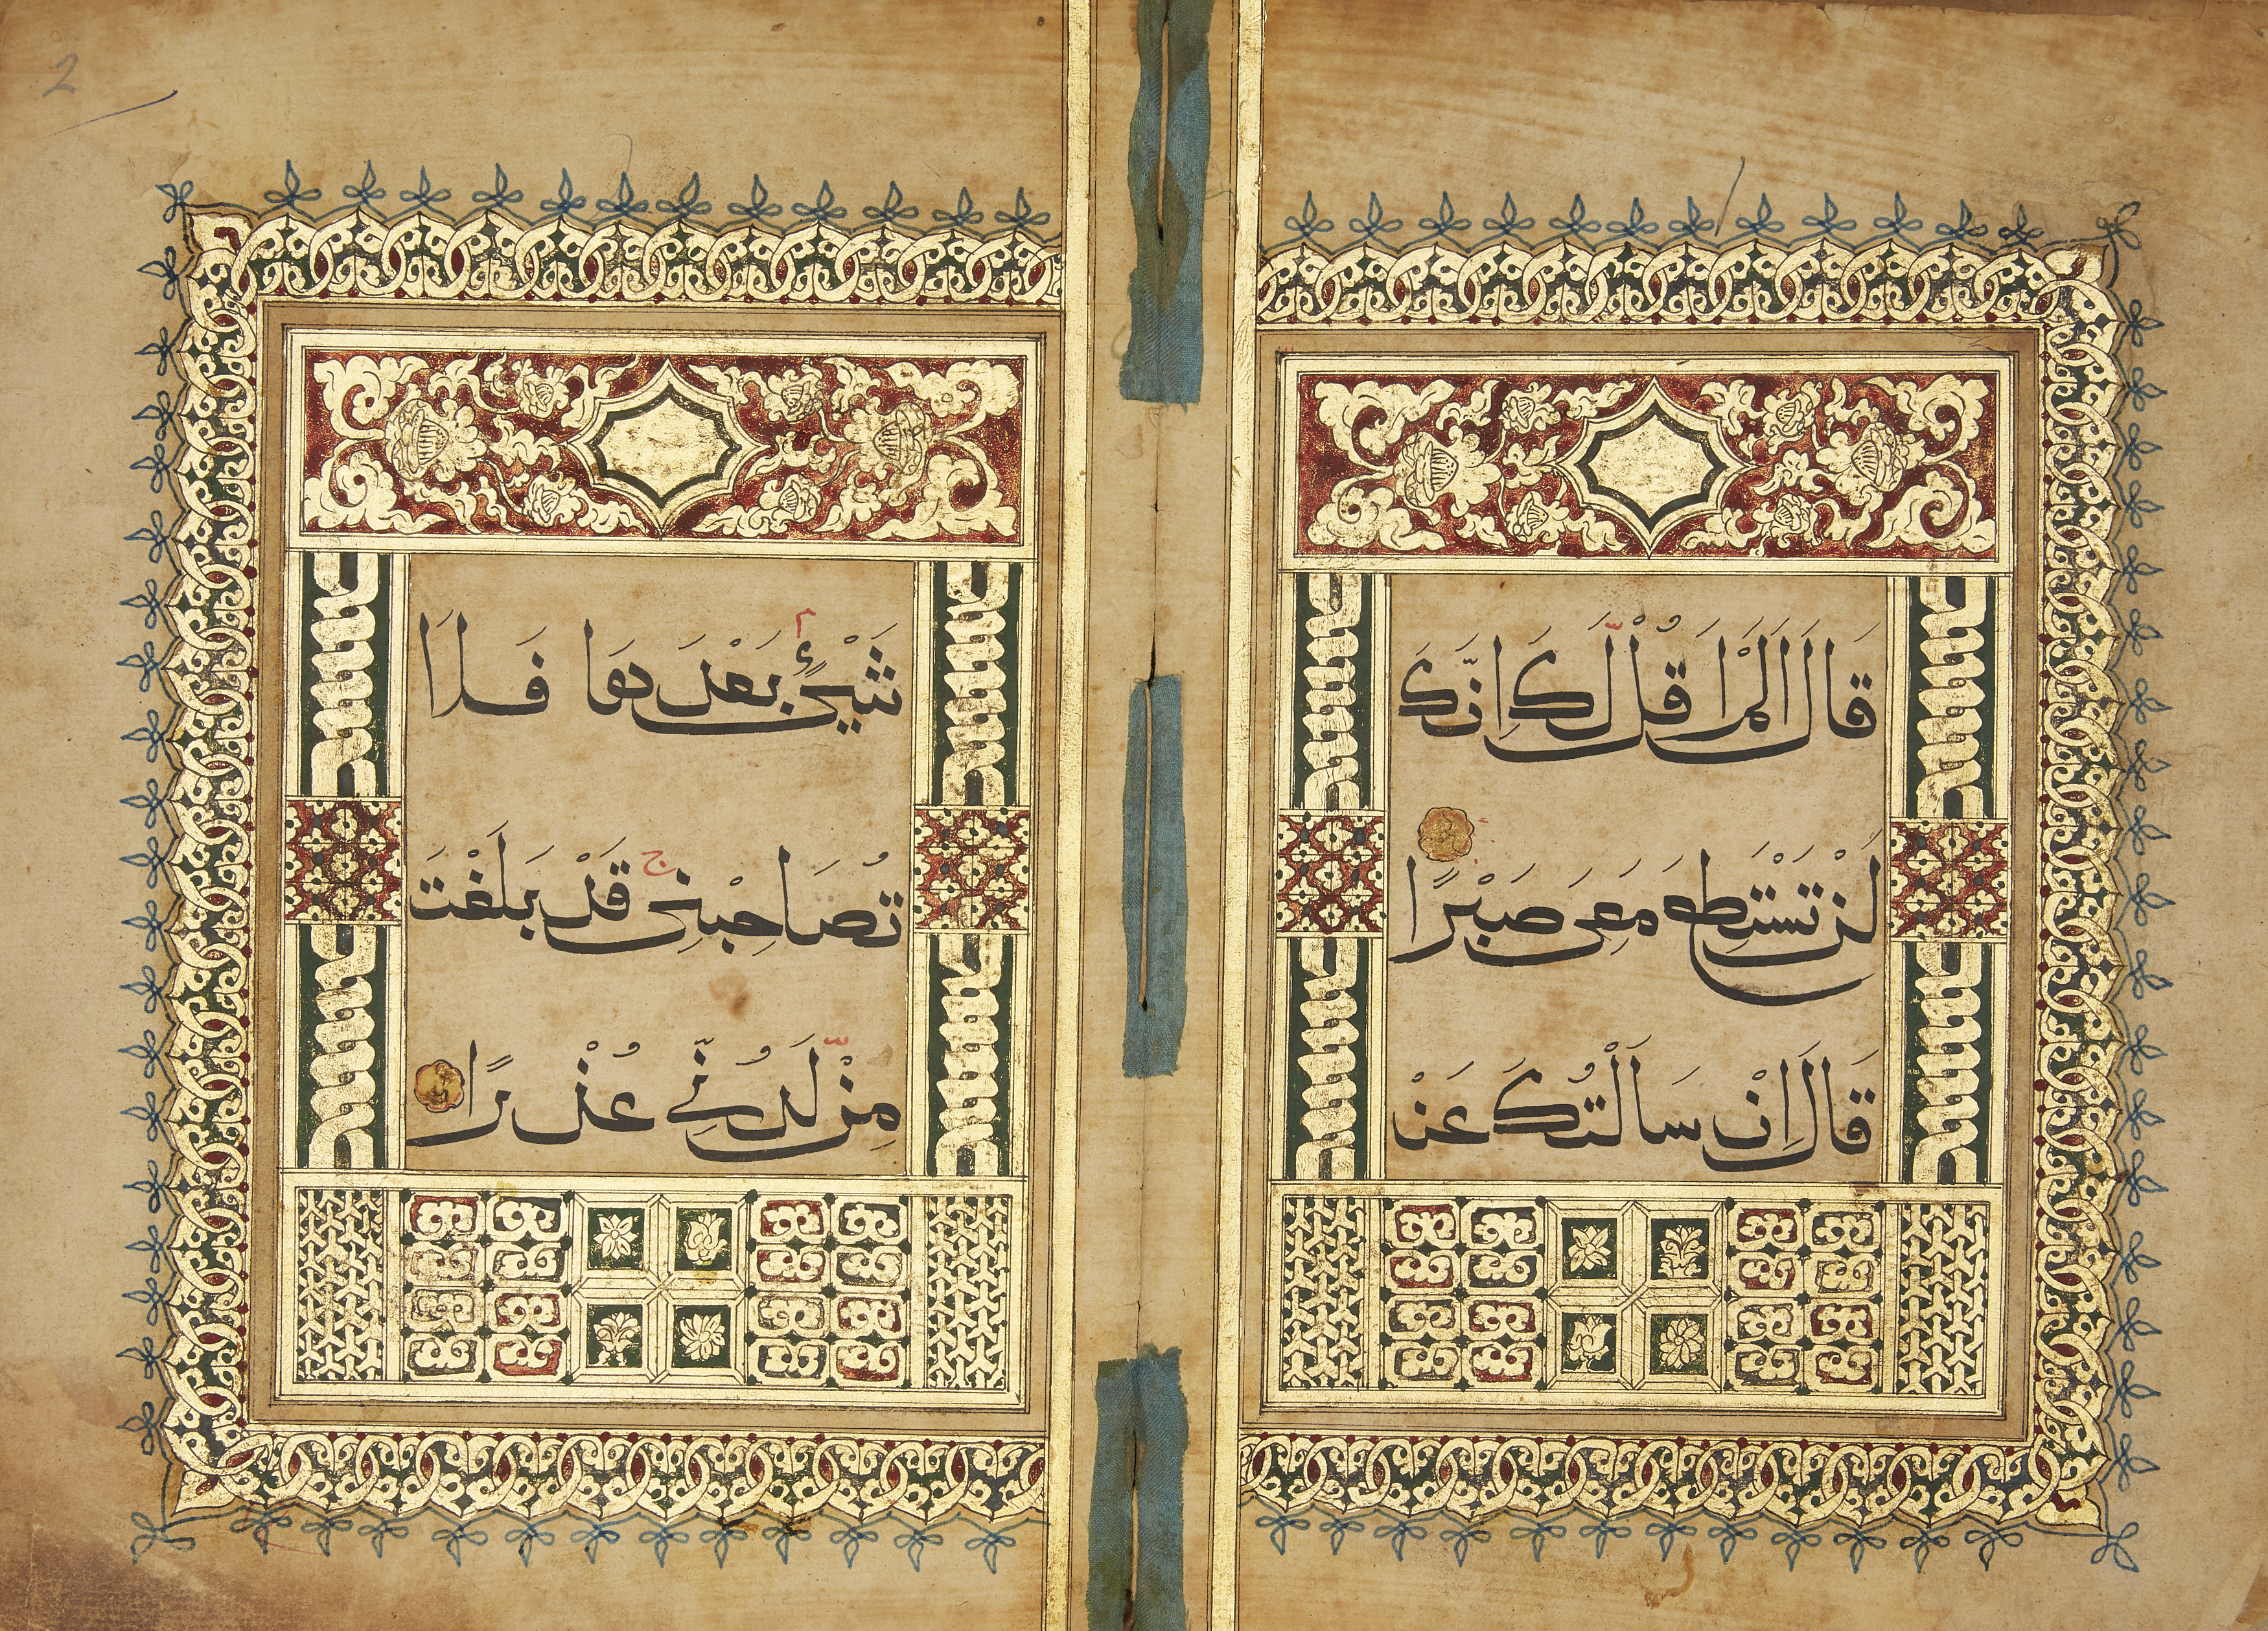 قَالَ اَلَمْ اَقُلْ لَّكَ اِنَّكَ
لَنْ تَسْتَطِيعَ مَعِيَ صَبْرًا
قَالَ اِنْ سَاَلْتُكَ عَنْ
شَيْءٍ بَعْدَهَا فَلَا
تُصَاحِبْنِي ج قَدْ بَلَغْتَ
مِنْ لَّدُنِّي عُذْرًا
2